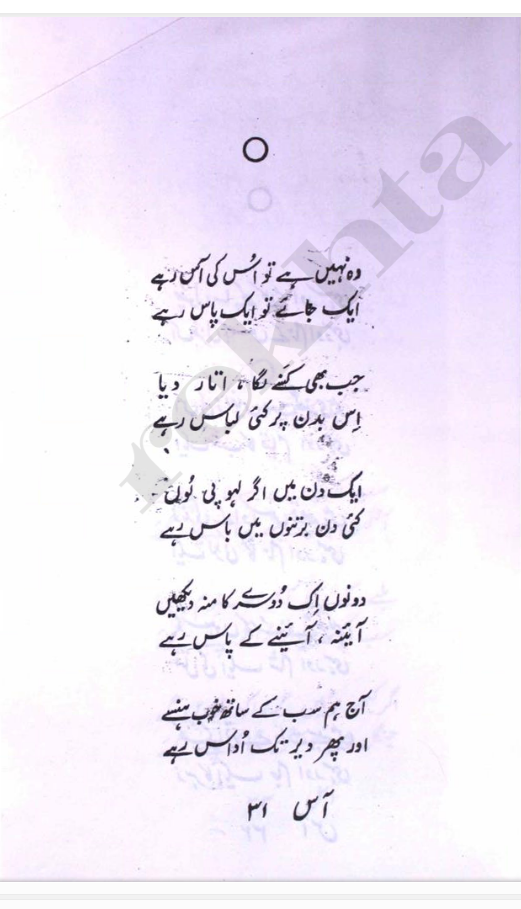 وہ نہیں ہے تو اُس کی آس رہے
ایک جائے تو ایک پاس رہے
جب بھی کسنے لگا ، اتار دیا
اِس بدن پر کئی لباس رہے
ایک دن میں اگر لہو پی لوں
کئی دن برتنوں میں باس رہے
دونوں اِک دُوسرے کا منہ دیکھیں
آئینہ ، آئینے کے پاس رہے
آج ہم سب کے ساتھ خوب ہنسے
اور پھر دیر تک اُداس رہے
آس ۳۱
rekhta